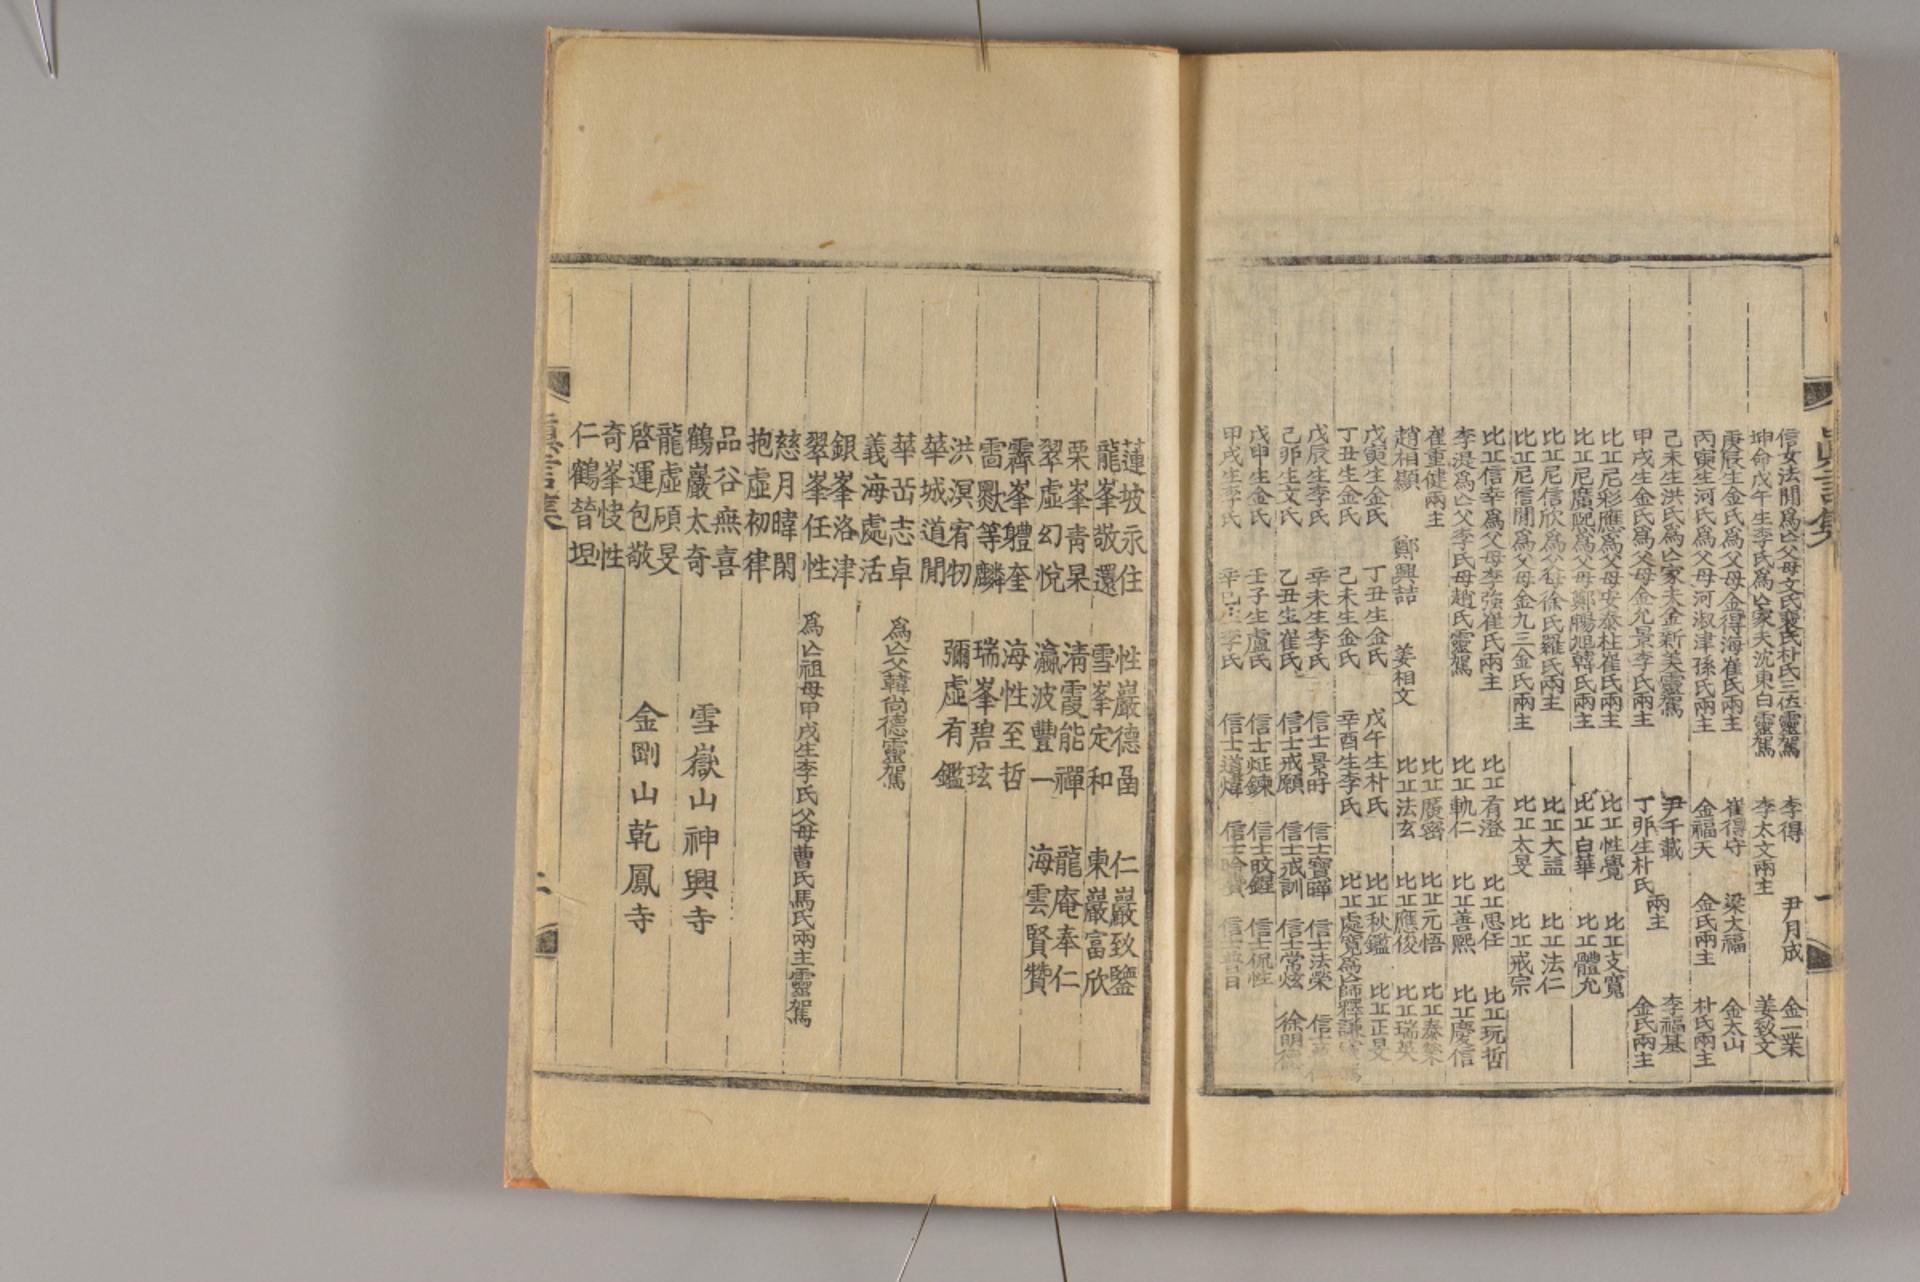 信女法閒爲亾父母文氏裵氏朴氏三位靈駕 李得 尹月成 金一業
坤命戊午生李氏爲亾家夫沈東白靈駕 李太文兩主 姜致文
庚辰生金氏爲父母金得海崔氏兩主 崔得守 梁太福 金太山
丙寅生河氏爲父母河淑津孫氏兩主 金福天 金氏兩主 朴氏兩主
己未生洪氏爲亾家夫金新美靈駕 尹千載 兩主 李福基
甲戌生金氏爲父母金允景李氏兩主 丁卯生朴氏 金氏兩主
比丘尼彩應爲父母安泰柱崔氏兩主 比丘性覺 比丘支寬
比丘尼廣 爲父母鄭賜旭韓氏兩主 比丘白華 比丘體允
比丘尼信欣爲父母徐氏羅氏兩主 比丘大益 比丘法仁
比丘尼信閒爲父母金九三金氏兩主 比丘太旻 比丘戒宗
比丘信幸爲父母李强崔氏兩主 比丘有澄 比丘思任 比丘玩哲
李湜爲亾父李氏母趙氏靈駕 比丘軌仁 比丘善熙 比丘慶信
崔重健兩主 比丘廣密 比丘元悟 比丘泰樂
趙相顯 鄭興喆 姜相文 比丘法玄 比丘應俊 比丘瑞英
戊寅生金氏 丁丑生金氏 戊午生朴氏 比丘秋鑑 比丘正旻
丁丑生金氏 己未生金氏 辛酉生李氏 比丘處寬爲亾師釋謙
戊辰生李氏 辛未生李氏 信士景旴 信士寶暉 信士法榮 信士
己卯生文氏 乙丑生崔氏 信士戒願 信士戒訓 信士常炫 徐明德
戊申生金氏 壬子生盧氏 信士炡鍊 信士旼鋥 信士侃性
甲戌生李氏 辛巳生李氏 信士道煒 信士 信士普日
眞言集 一
蓮坡永住 性嚴德畐 仁巖致鑒
龍峯敬還 雪峯定和 東巖富欣
栗峯靑杲 淸霞能禪 龍庵奉仁
翠虛幻悅 瀛波豐一 海雲賢贊
霽峯體奎 海性至哲
雷 等麟 瑞峯碧玹
洪溟宥牣 彌虛有鑑
華城道閒
華岳志卓 爲亾父韓尙德靈駕
義海處活
銀峯洛津
翠峯任性 爲亾祖母甲戌生李氏父母曹氏馬氏兩主靈駕
慈月暐閑
抱虛初律
品谷無喜
鶴巖太奇 雪嶽山神興寺
龍虛碩旻
啓運包敬 金剛山乾鳳寺
奇峯快性
仁鶴晉坦
眞言集 二